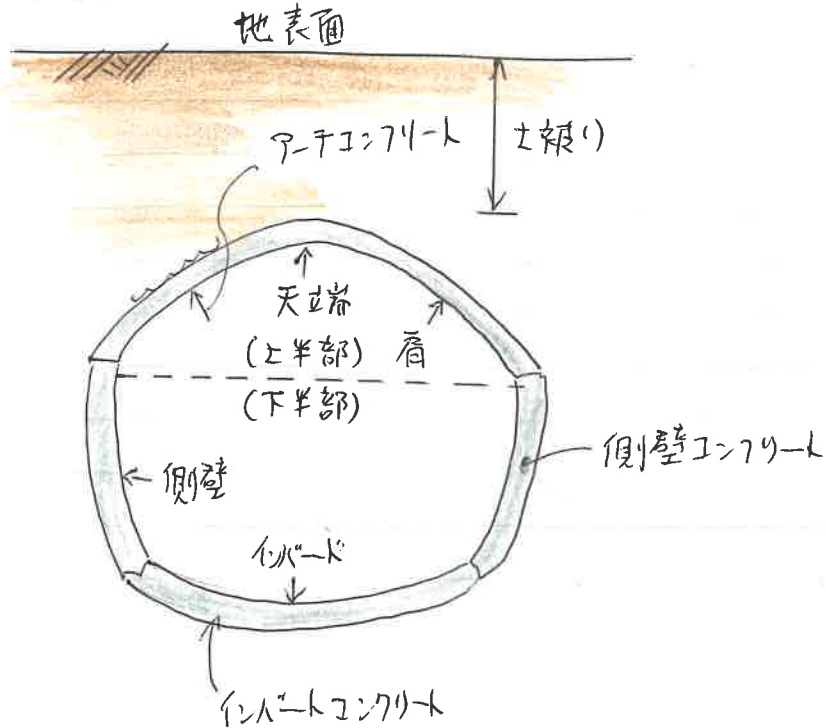 地表面
アーチコンクリート
土被り
天端
(上半部)
肩
(下半部)
側壁
側壁コンクリート
インバート
インバートコンクリート